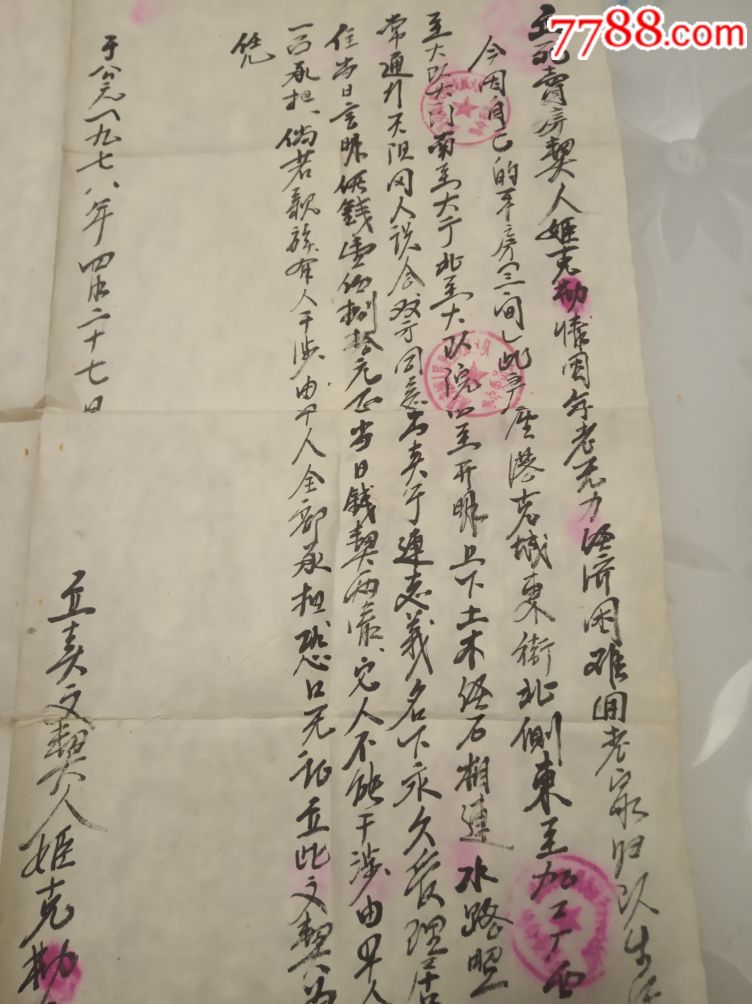 7788.com
立死賣房契人姬克勤情因年老无力经济困难回老家归队生活
今因自己的平房三间此产座 老城東街北側東至加工厂西
至大队大门南至大厅北至大队院四至开明上下土木砖石相連水路照
常通行无阻 双方同意出卖于連志義名下永久管理居
住当日言明 钱壹佰捌拾元正当日钱契两清 人不能干涉由 人
一面承担倘若親族有人干涉由 人全部承担恐口无証立此文契为
凭
于公元一九七八年四月二十七日
立卖文契人姬克勤